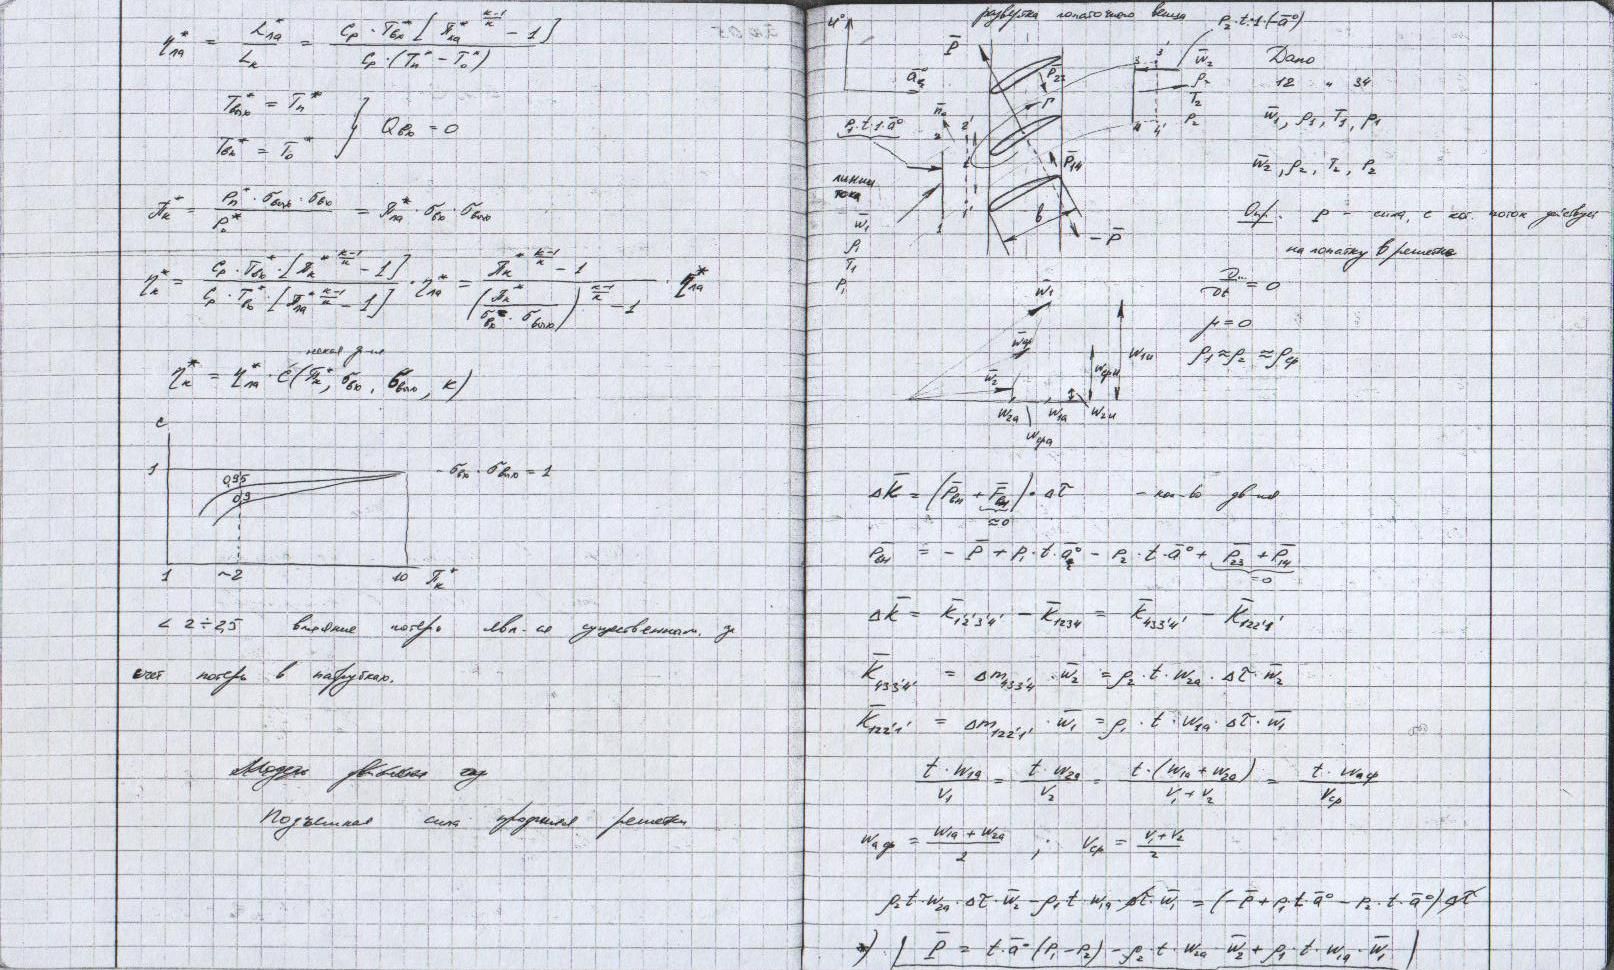 η*ла = L*ла / Lк = Cp · T*вх [π*ла^((к-1)/к) - 1] / Cp · (T*п - T*о)
T*вых = T*п
T*вх = T*о
Qвх = 0
π*к = P*п · σвых · σвх / P* = π*ла · σвх · σвых
η*к = Cp · T*вх · [π*к^((к-1)/к) - 1] / Cp · T*вх · [π*ла^((к-1)/к) - 1] · η*ла = (π*к^((к-1)/к) - 1) / ((π*к / σвх · σвых)^((к-1)/к) - 1) · η*ла
η*к = η*ла · C (π*к, σвх, σвых, к)
C
1
0,95
0,9
- σвх · σвых = 1
1 ~2 10 π*к
< 2 ÷ 2,5 влияние потерь явл-ся существенным, за
счет потерь в патрубках.
Модель
Подъемная сила профиля решетки
развертка лопаточного венца
P2 · t · 1 · (-ā°)
P̄
P̄23
Г
P1 · t · 1 · ā°
линии
тока
w̄1
ρ1
T1
P1
P̄14
b
- P̄
w̄2
ρ2
T2
P2
Дано
12 и 34
w̄1, ρ1, T1, P1
w̄2, ρ2, T2, P2
Опр. P - сила, с кот. поток действует
на лопатку в решетке
D.../Dt = 0
μ = 0
ρ1 ≈ ρ2 ≈ ρср
w̄1
w̄ср
w̄2
w1u
wсрu
w2a w1a w2u
wсрa
ΔK̄ = (P̄вн + F̄вн) · Δτ - кол-во дв-ия
≈0
P̄вн = - P̄ + P1 · t · ā° - P2 · t · ā° + P̄23 + P̄14
=0
ΔK̄ = K̄1'2'3'4' - K̄1234 = K̄433'4' - K̄122'1'
K̄433'4' = Δm433'4' · w̄2 = ρ2 · t · w2a · Δτ · w̄2
K̄122'1' = Δm122'1' · w̄1 = ρ1 · t · w1a · Δτ · w̄1
t · w1a / v1 = t · w2a / v2 = t · (w1a + w2a) / v1 + v2 = t · wa ср / vср
wa ср = (w1a + w2a) / 2 ; vср = (v1 + v2) / 2
ρ2 t · w2a · Δτ · w̄2 - ρ1 t w1a Δτ · w̄1 = (-P̄ + P1 t · ā° - P2 · t · ā°) Δτ
P̄ = t · ā° (P1 - P2) - ρ2 · t · w2a · w̄2 + ρ1 · t · w1a · w̄1